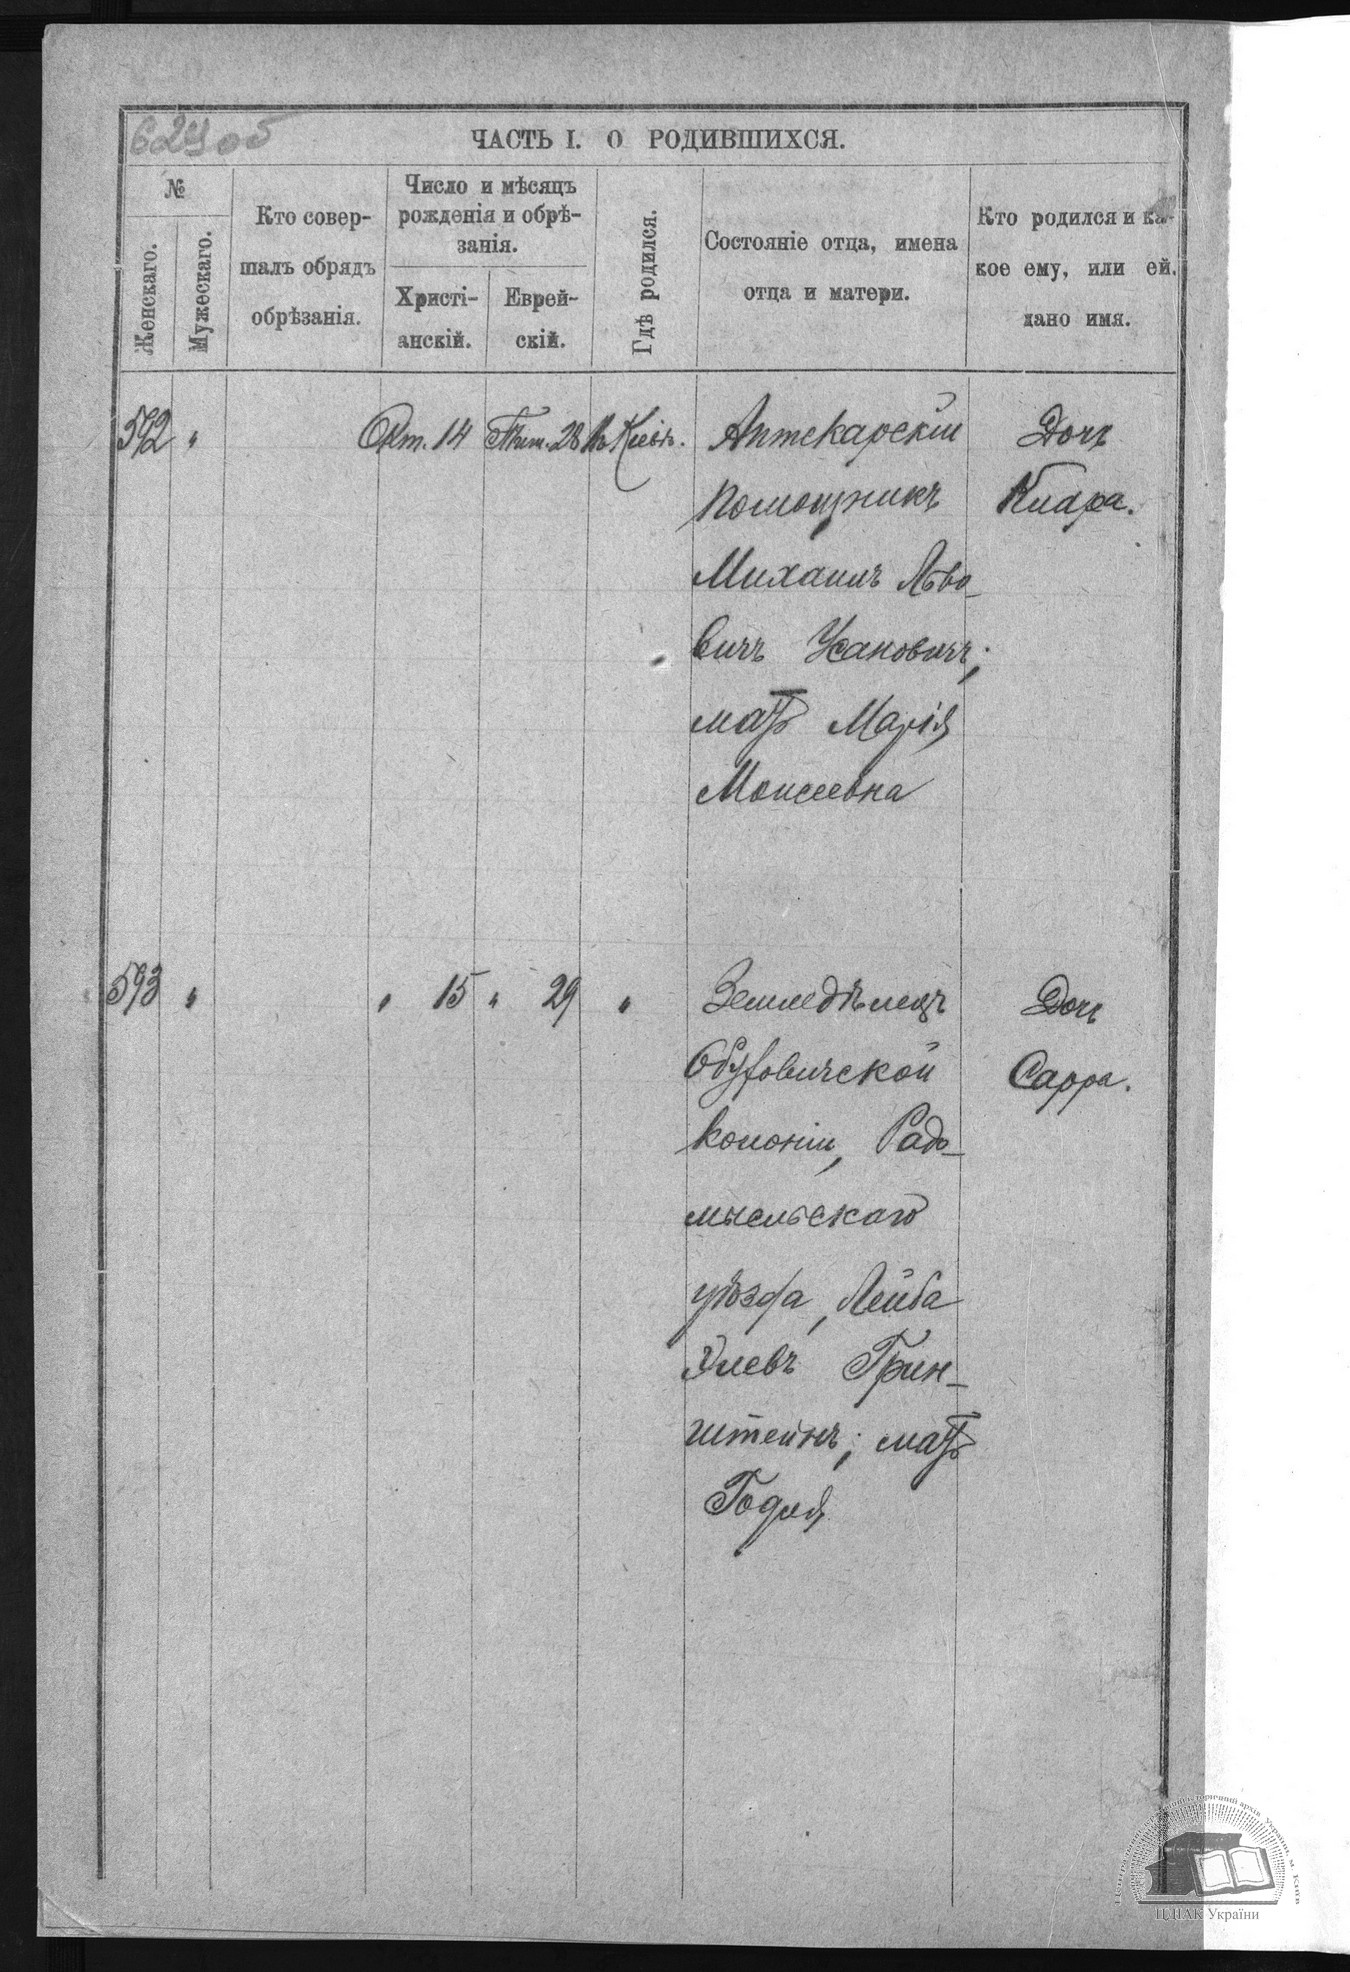 629об
ЧАСТЬ I. О РОДИВШИХСЯ.
№
Женскаго.
Мужескаго.
Кто совер-
шалъ обрядъ
обрѣзанія.
Число и мѣсяцъ
рожденія и обрѣ-
занія.
Христі-
анскій.
Еврей-
скій.
Гдѣ родился.
Состояніе отца, имена
отца и матери.
Кто родился и ка-
кое ему, или ей,
дано имя.
592 " Окт. 14 Тиш. 28 Въ Кіевѣ. Аптекарскій Дочь
помощникъ Клара.
Михаилъ Льво-
вичъ Усановичъ;
мать Марія
Моисеевна
593 " " 15 " 29 " Земледѣлецъ Дочь
Обуховичской Сарра.
колоніи, Радо-
мысльскаго
уѣзда, Лейба
Улевъ Грин-
штейнъ; мать
Годля
ЦДІАК України